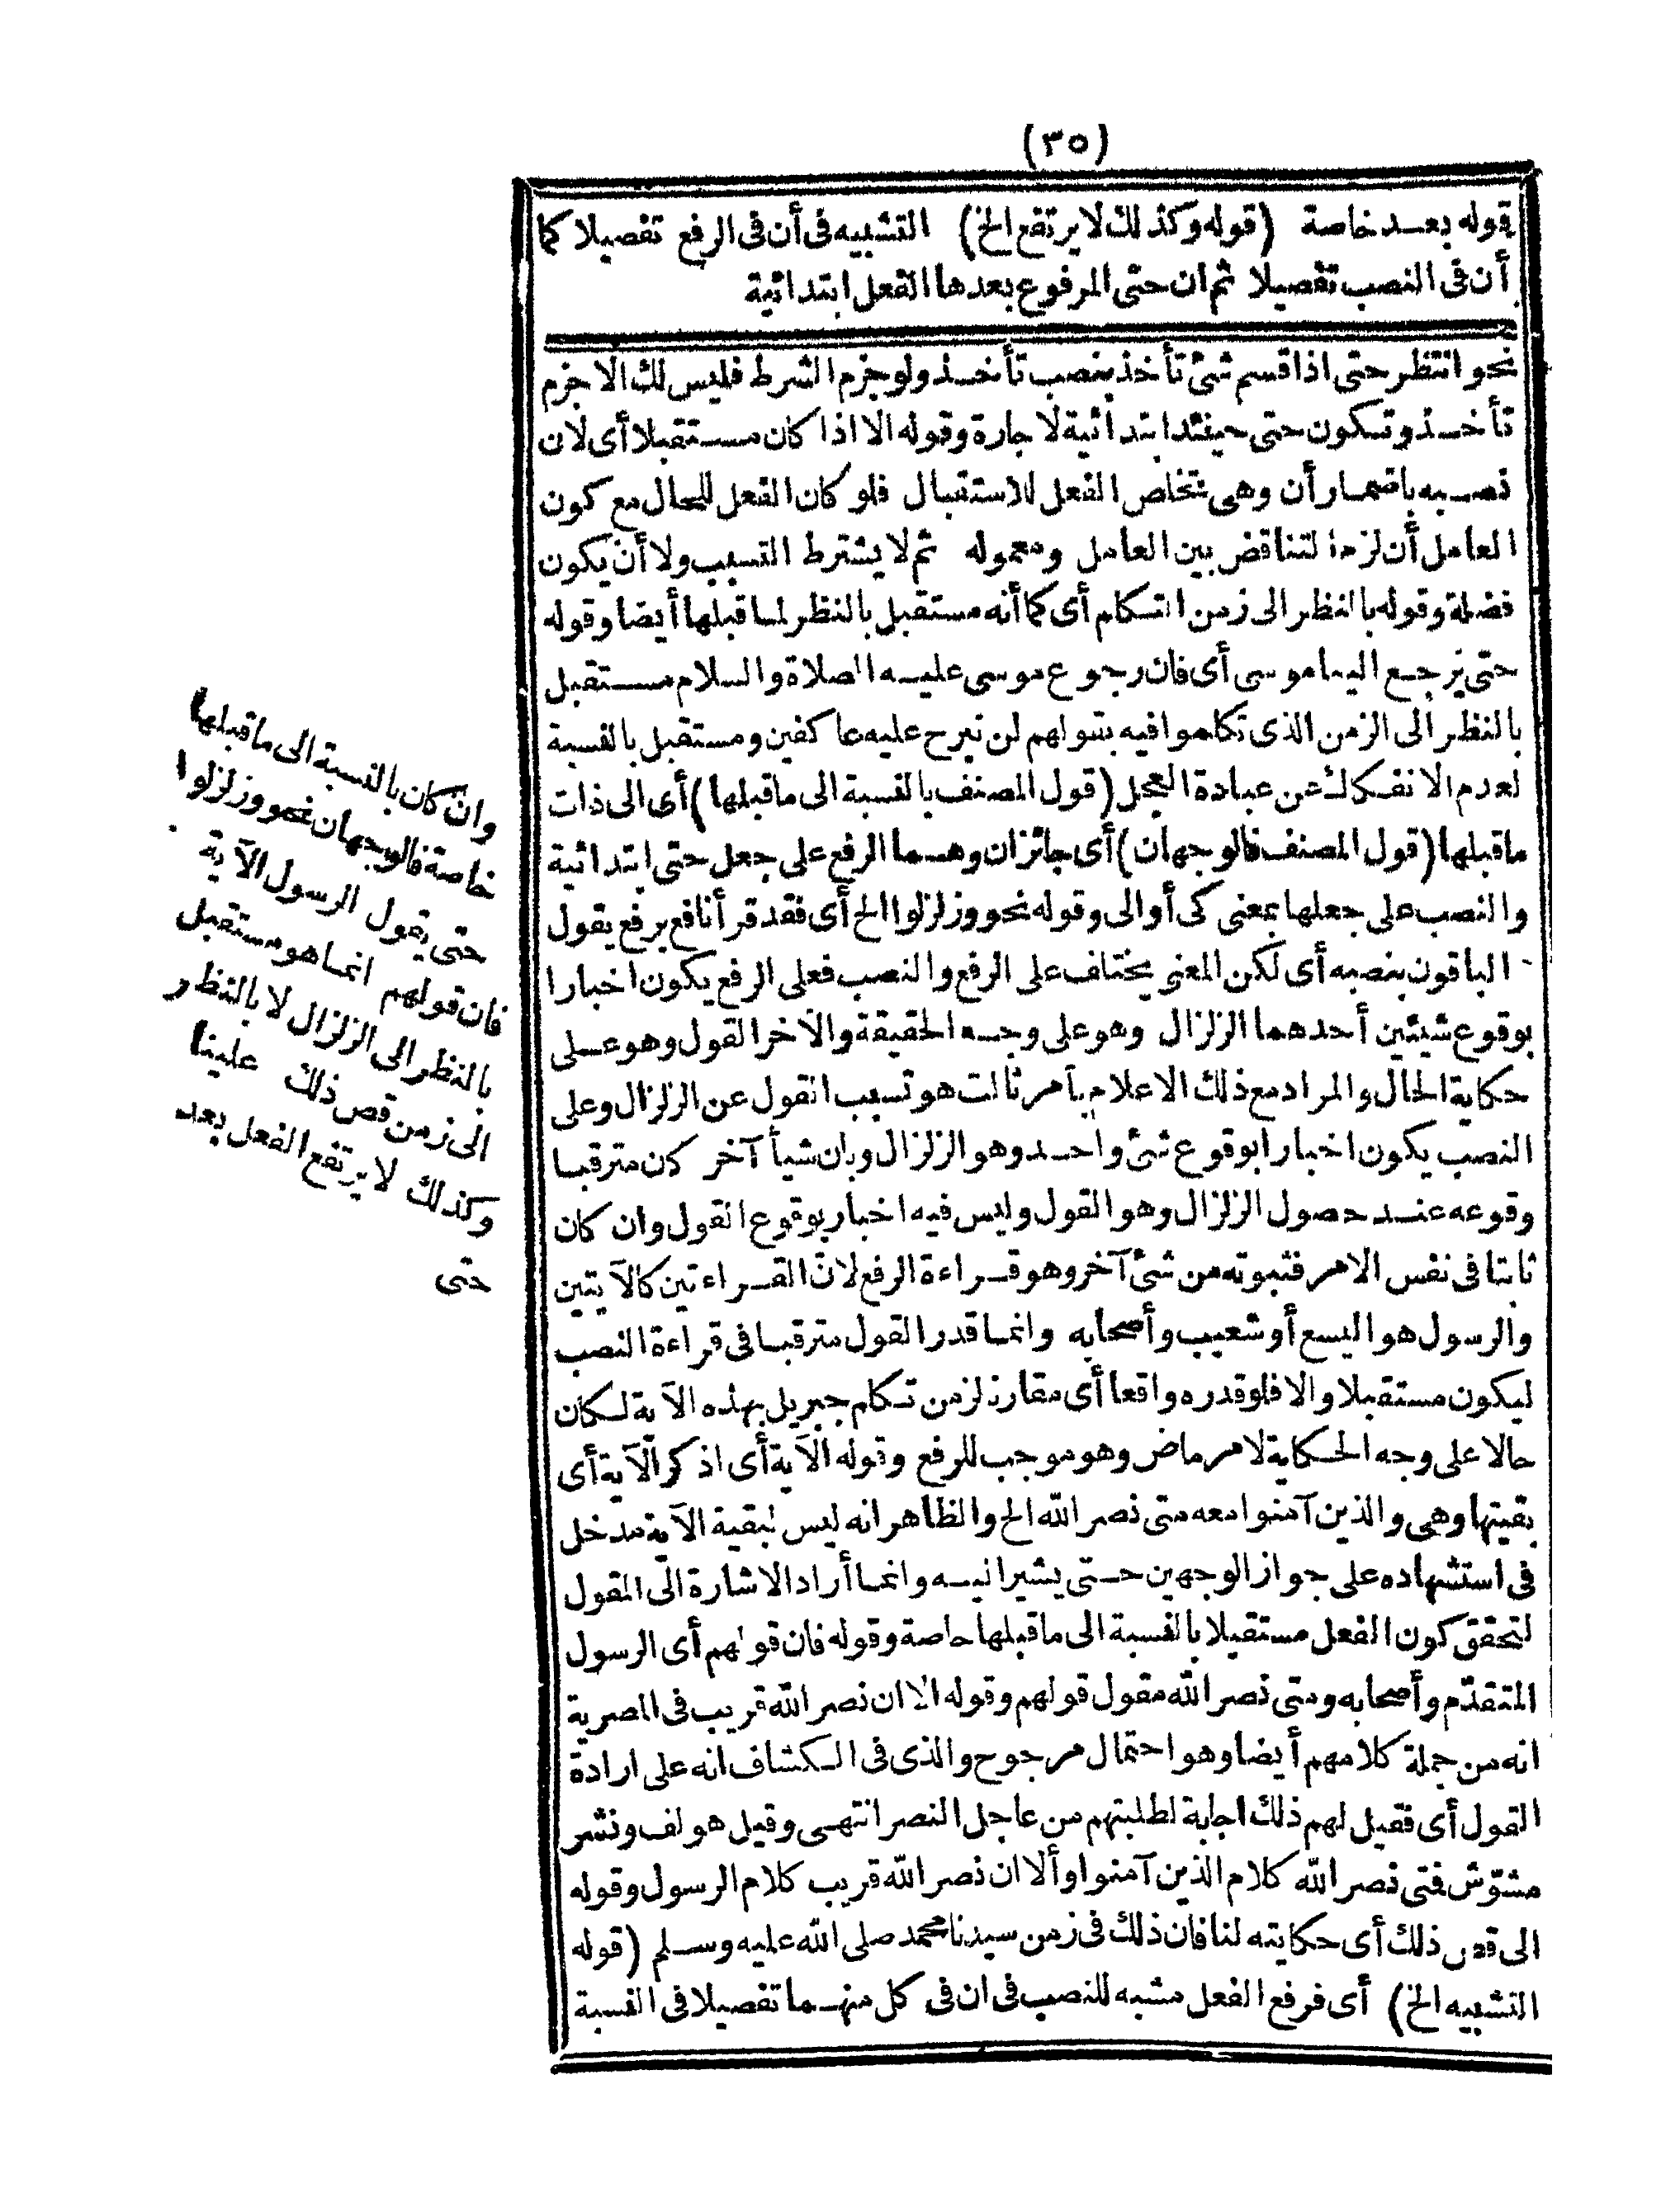 (٣٥)
قوله بعد خاصة (قوله وكذلك لا يرتفع الخ) التشبيه فى أن فى الرفع تفصيلا كما
أن فى النصب تفصيلا ثم ان حتى المرفوع بعدها الفعل ابتدائية
نحو انتظر حتى اذا قسم شئ تأخذ بنصب تأخذ ولو جزم الشرط فليس لك الا جزم
تأخذ وتكون حتى حينئذ ابتدائية لا جارة وقوله الا اذا كان مستقبلا أى لان
نصبه باضمار أن وهى تخلص الفعل للاستقبال فلو كان الفعل للحال مع كون
العامل أن لزم التناقض بين العامل ومعموله ثم لا يشترط التسبب ولا أن يكون
فضلة وقوله بالنظر الى زمن التكلم أى كما أنه مستقبل بالنظر لما قبلها أيضا وقوله
حتى يرجع الينا موسى أى فان رجوع موسى عليه الصلاة والسلام مستقبل
بالنظر الى الزمن الذى تكلموا فيه بقولهم لن نبرح عليه عاكفين ومستقبل بالنسبة
لعدم الانفكاك عن عبادة العجل (قول المصنف بالنسبة الى ما قبلها) أى الى ذات
ما قبلها (قول المصنف فالوجهان) أى جائزان وهما الرفع على جعل حتى ابتدائية
والنصب على جعلها بمعنى كى أو الى وقوله نحو وزلزلوا الخ أى فقد قرأ نافع برفع يقول
الباقون بنصبه أى لكن المعنى يختلف على الرفع والنصب فعلى الرفع يكون اخبارا
بوقوع شيئين أحدهما الزلزال وهو على وجه الحقيقة والآخر القول وهو على
حكاية الحال والمراد مع ذلك الاعلام بأمر ثالث هو تسبب القول عن الزلزال وعلى
النصب يكون اخبارا بوقوع شئ واحد وهو الزلزال وبان شيأ آخر كان مترقبا
وقوعه عند حصول الزلزال وهو القول وليس فيه اخبار بوقوع القول وان كان
ثابتا فى نفس الامر فثبوته من شئ آخر وهو قراءة الرفع لان القراءتين كالآيتين
والرسول هو اليسع أو شعيب وأصحابه وانما قدر القول مترقبا فى قراءة النصب
ليكون مستقبلا والا فلو قدره واقعا أى مقارنا لزمن تكلم جبريل بهذه الآية لكان
حالا على وجه الحكاية لامر ماض وهو موجب للرفع وقوله الآية أى اذكر الآية أى
بقيتها وهى والذين آمنوا معه متى نصر الله الخ والظاهر انه ليس لبقية الآية مدخل
فى استشهاده على جواز الوجهين حتى يشير اليه وانما أراد الاشارة الى المقول
لتحقق كون الفعل مستقبلا بالنسبة الى ما قبلها خاصة وقوله فان قولهم أى الرسول
المتقدّم وأصحابه ومتى نصر الله مقول قولهم وقوله الا ان نصر الله قريب فى المصرية
انه من جملة كلامهم أيضا وهو احتمال مرجوح والذى فى الكشاف انه على ارادة
القول أى فقيل لهم ذلك اجابة لطلبتهم من عاجل النصر انتهى وقيل هو لف ونشر
مشوّش فمتى نصر الله كلام الذين آمنوا وألا ان نصر الله قريب كلام الرسول وقوله
الى قص ذلك أى حكايته لنا فان ذلك فى زمن سيدنا محمد صلى الله عليه وسلم (قوله
التشبيه الخ) أى فرفع الفعل مشبه للنصب فى ان فى كل منهما تفصيلا فى النسبة
وان كان بالنسبة الى ما قبلها
خاصة فالوجهان نحو وزلزلوا
حتى يقول الرسول الآية
فان قولهم انما هو مستقبل
بالنظر الى الزلزال لا بالنظر
الى زمن قص ذلك علينا
وكذلك لا يرتفع الفعل بعد
حتى